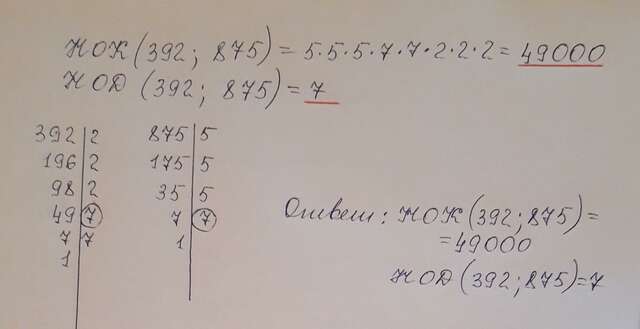 НОК (392; 875) = 5·5·5·7·7·2·2·2 = 49000
НОД (392; 875) = 7
392 | 2
196 | 2
98 | 2
49 | 7
7 | 7
1 |
875 | 5
175 | 5
35 | 5
7 | 7
1 |
Ответ: НОК (392; 875) =
= 49000
НОД (392; 875) = 7